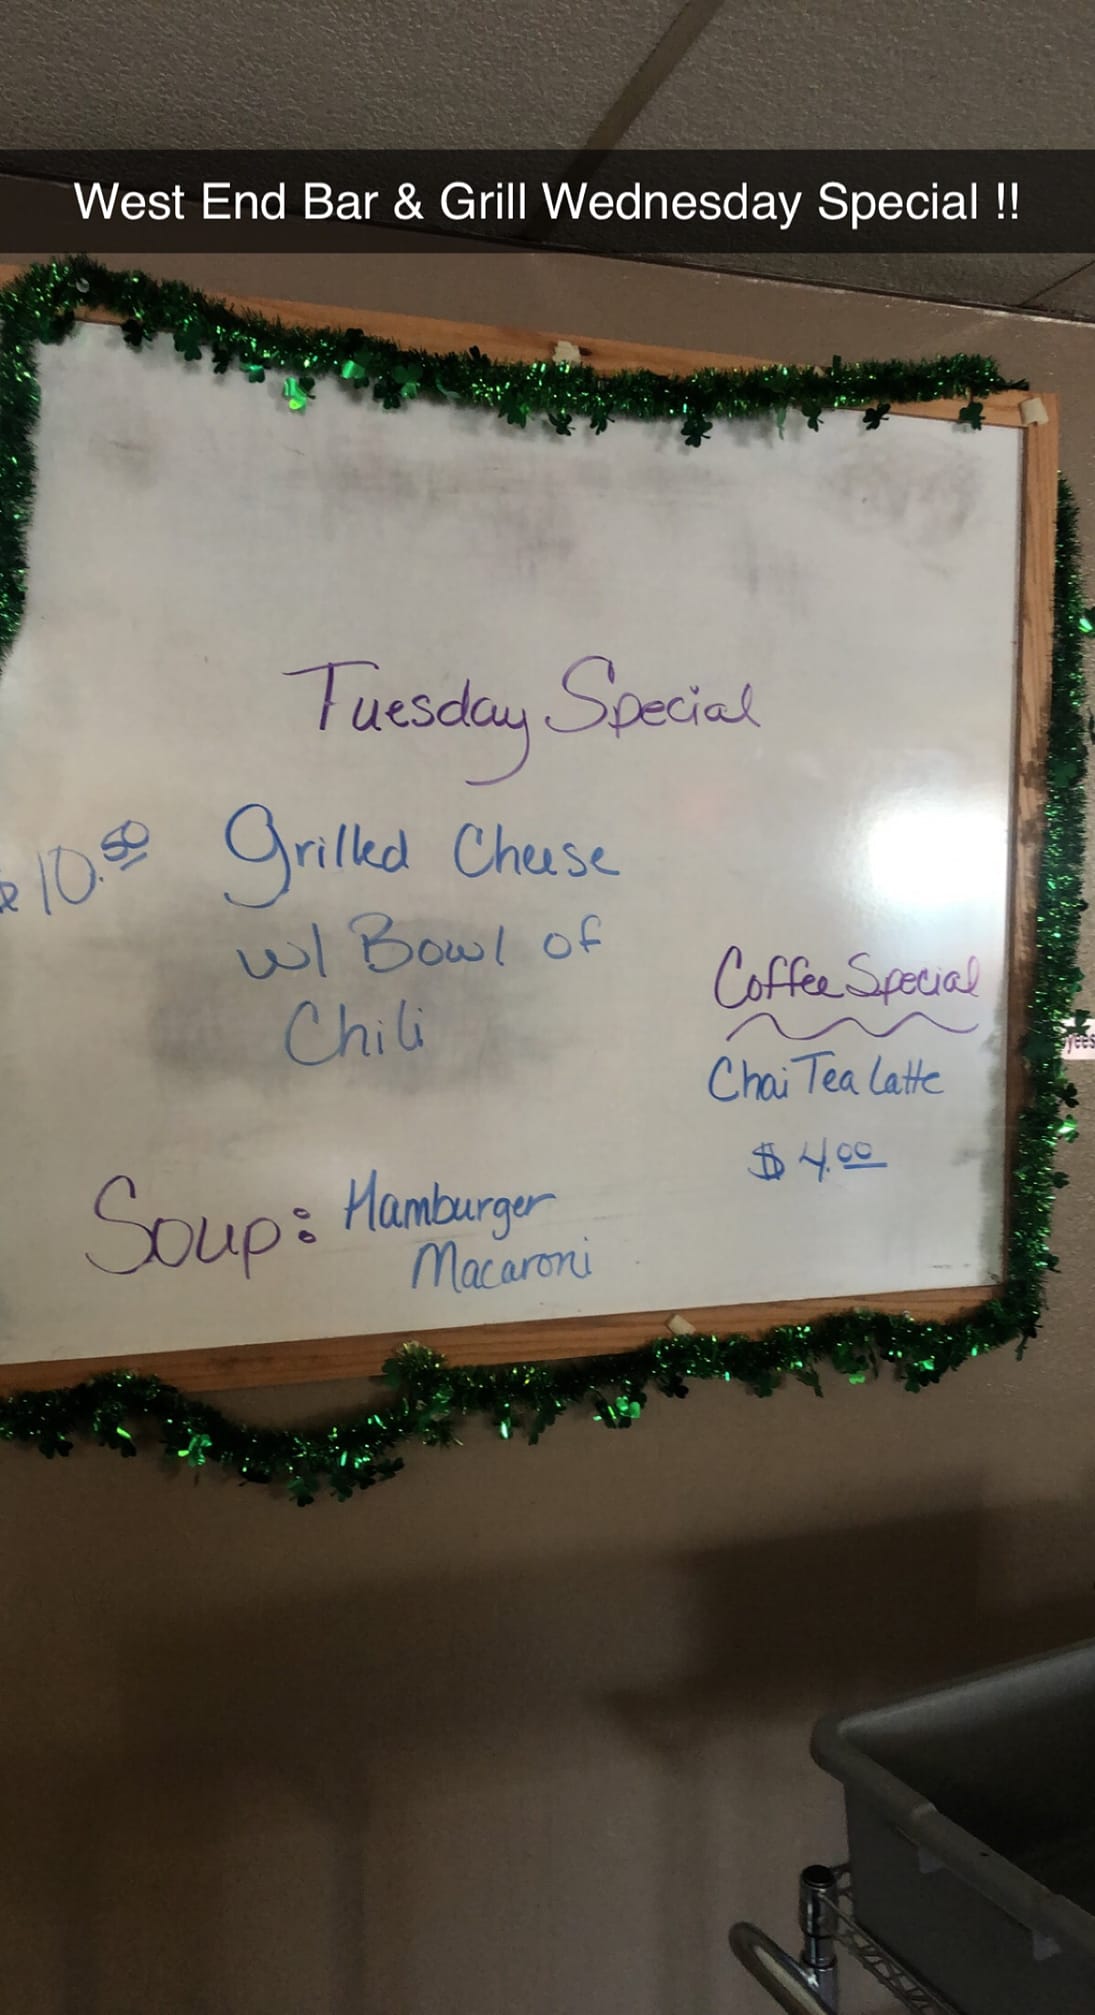 West End Bar & Grill Wednesday Special !!
Tuesday Special
$10.50 Grilled Cheese
w/ Bowl of
Chili
Coffee Special
Chai Tea Latte
$4.00
Soup: Hamburger
Macaroni
yees